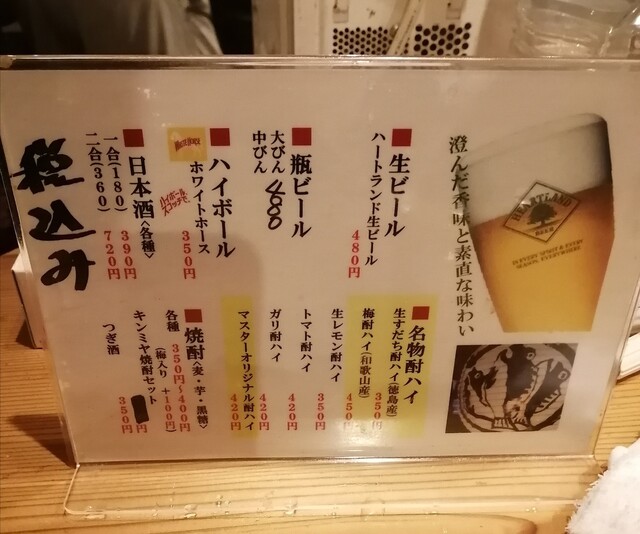 澄んだ香味と素直な味わい
HEARTLAND
BEER
■生ビール
ハートランド生ビール
480円
■瓶ビール
大びん
中びん
■ハイボール
ホワイトホース
350円
WHITE HORSE
ハイボール
スコッチで。
■日本酒<各種>
一合(180) 390円
二合(360) 720円
税込み
■名物酎ハイ
生すだち酎ハイ(徳島産) 350円
梅酎ハイ(和歌山産) 450円
生レモン酎ハイ 350円
トマト酎ハイ 420円
ガリ酎ハイ 420円
マスターオリジナル酎ハイ 420円
■焼酎<麦・芋・黒糖>
各種 350円〜400円
(梅入り +100円)
キンミヤ焼酎セット
つぎ酒 350円